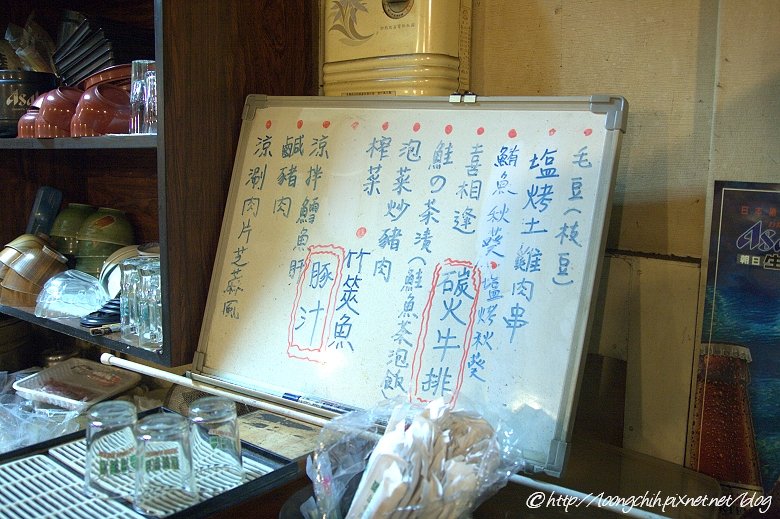 毛豆(枝豆)
塩烤土雞肉串
鮪魚秋葵•塩烤秋葵
喜相逢
碳火牛排
鮭の茶漬(鮭魚茶泡飯)
泡菜炒豬肉
榨菜
竹筴魚
豚汁
涼拌鱈魚肝
鹹豬肉
涼涮肉片芝蔴風
Asa
朝日
©http://loongchih.pixnet.net/blog